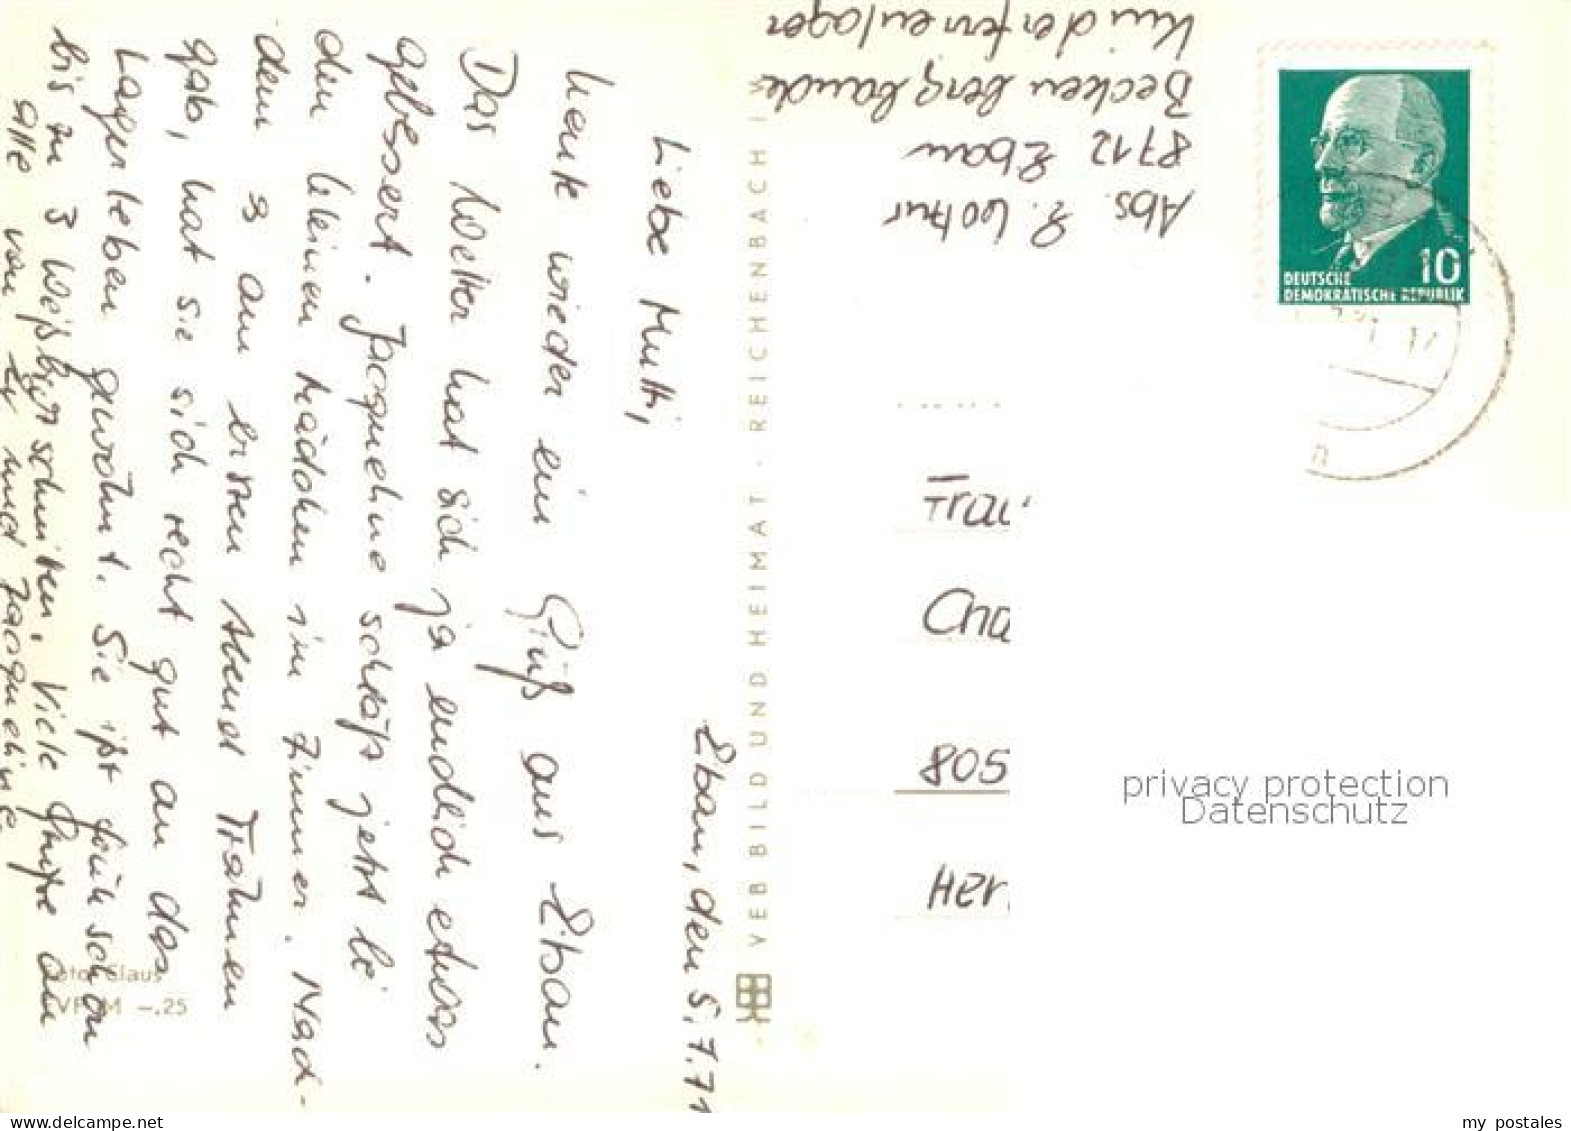 Eibau, den 5.7.71
Liebe Mutti,
heute wieder ein Gruß aus Eibau.
Das Wetter hat sich ja endlich etwas
gebessert. Jacqueline schläft jetzt bei
den kleinen Mädchen im Zimmer. Nach-
dem es am ersten Abend Tränen
gab, hat sie sich recht gut an das
Lagerleben gewöhnt. Sie ißt früh schon
bis zu 3 Weißbrotschnitten. Viele Grüße an
alle von und Jacqueline
Foto: Claus
M –.25
VEB BILD UND HEIMAT · REICHENBACH I. V.
Abs.
8712 Eibau
Beckenbergbaude
Kinderferienlager
10
DEUTSCHE
DEMOKRATISCHE REPUBLIK
Frau
Cha
805
Her
privacy protection
Datenschutz
my postales